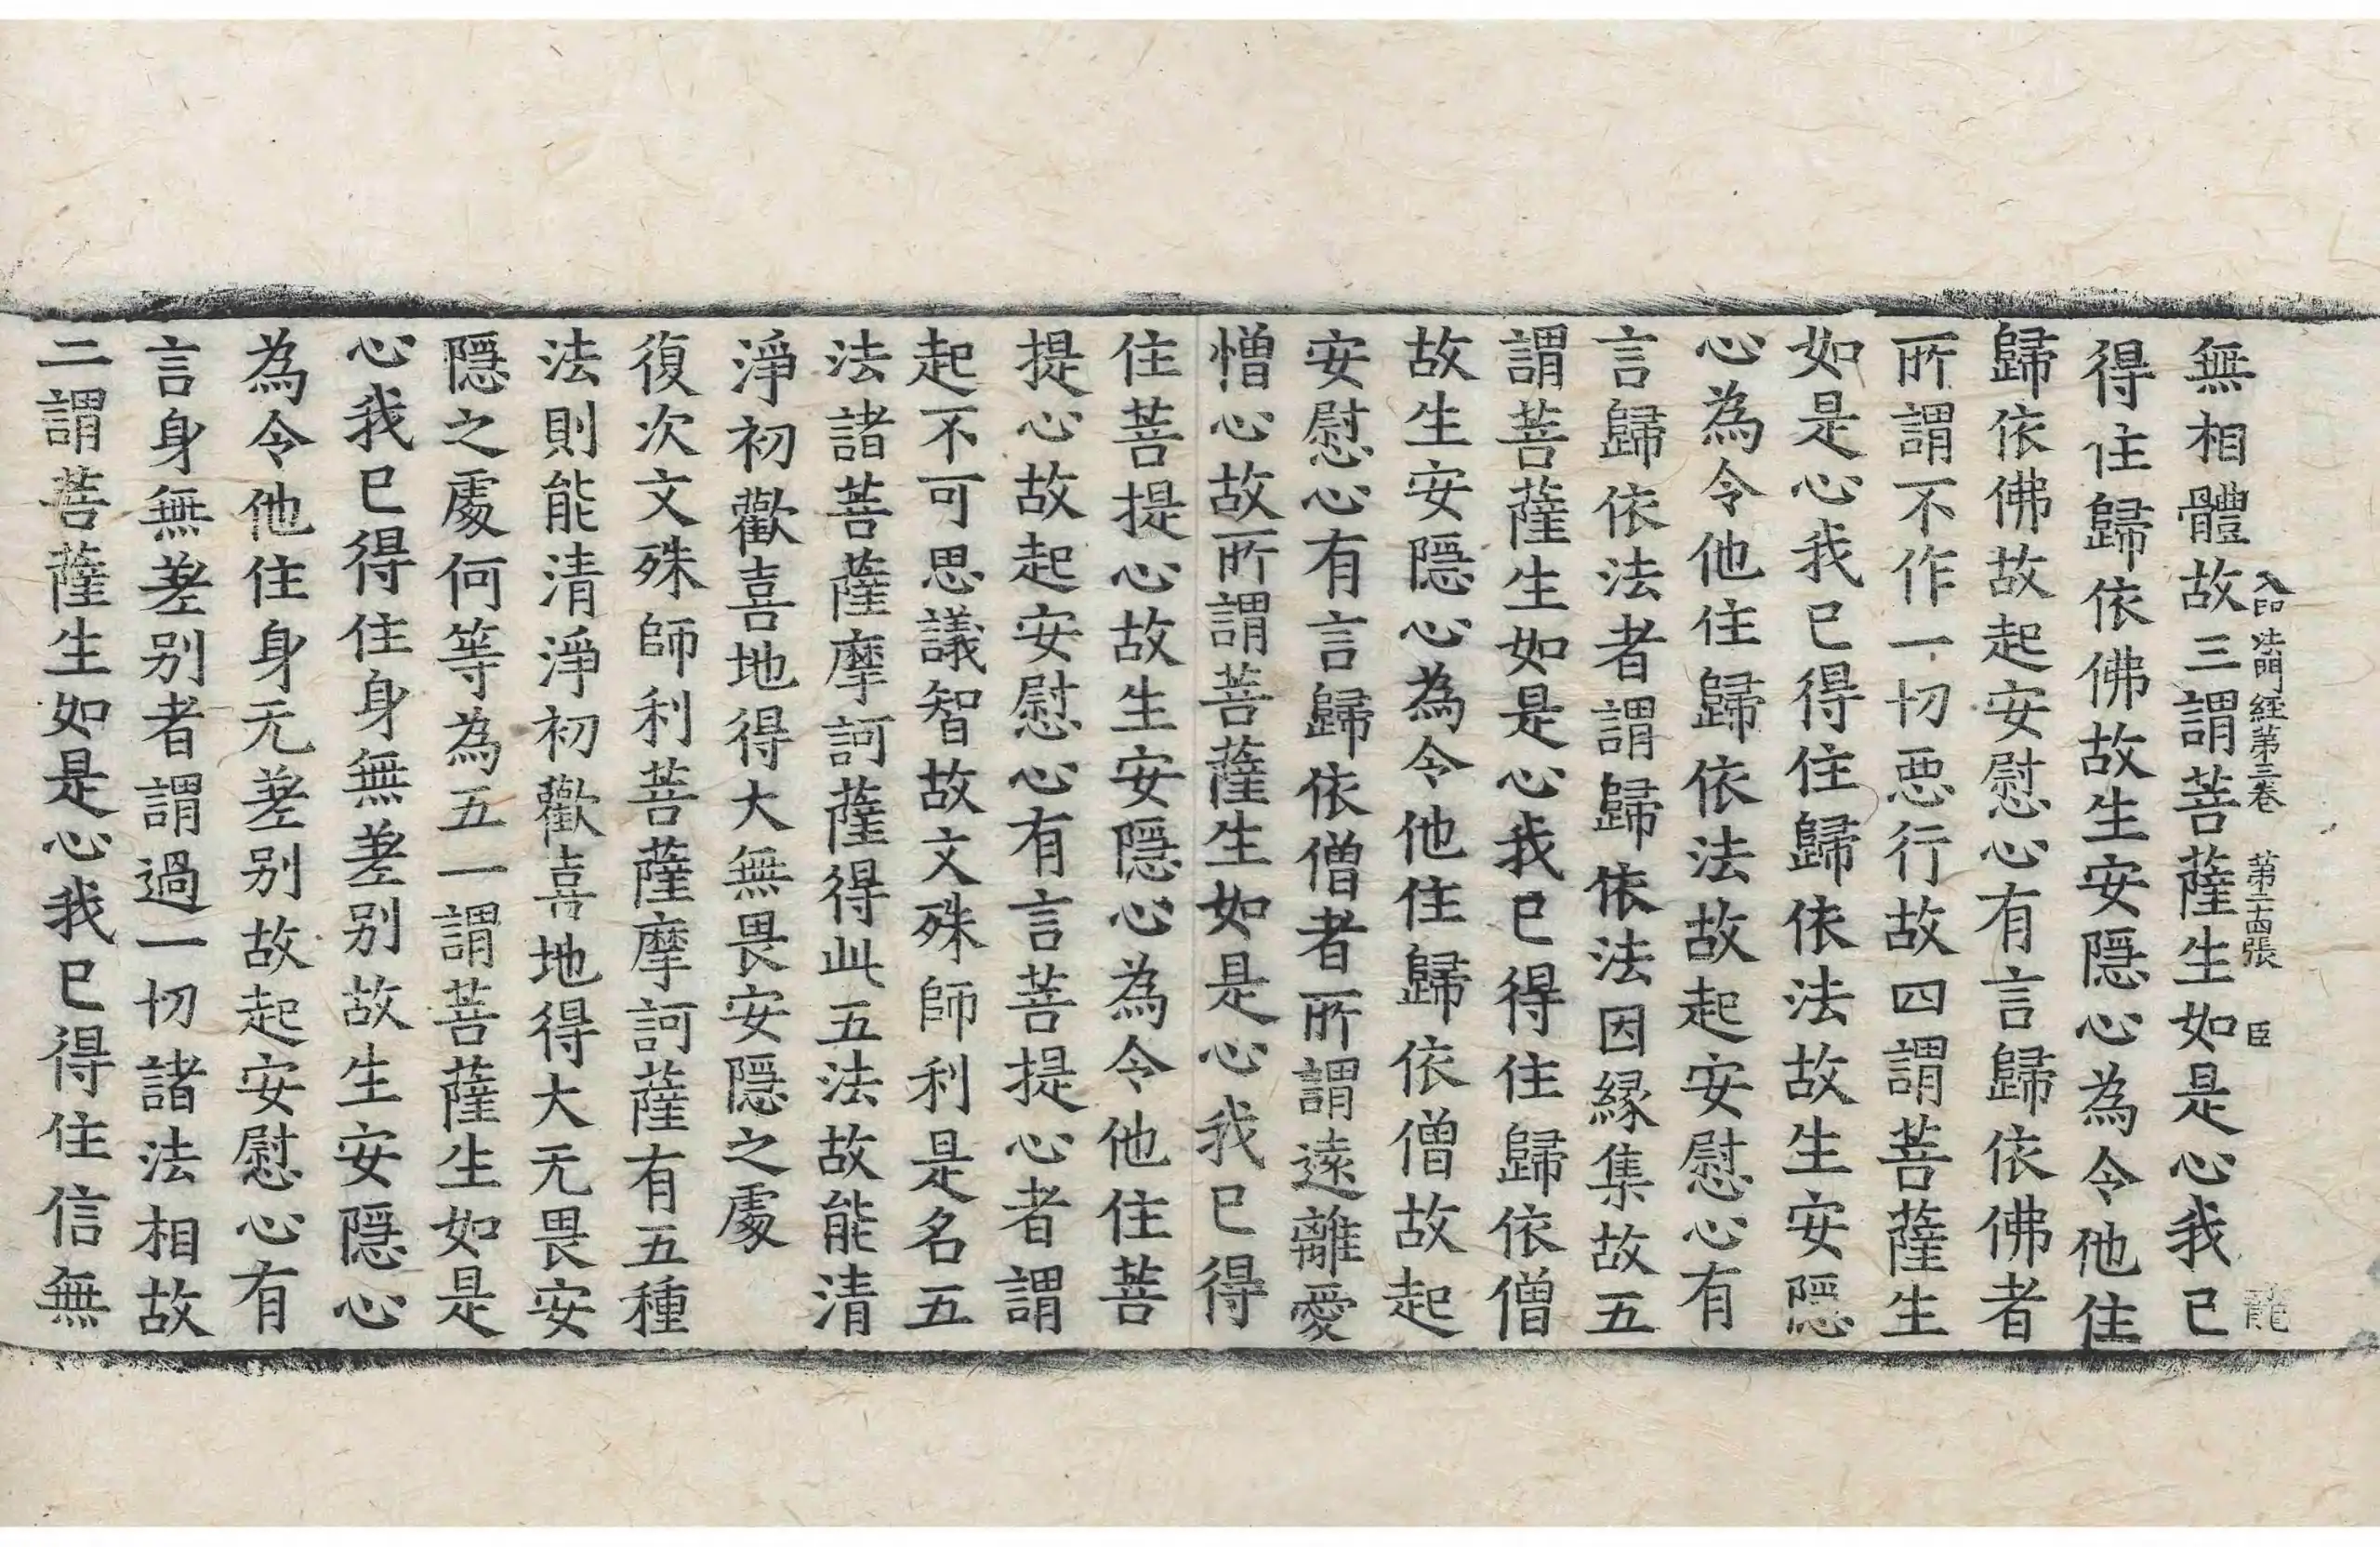 入印法門經第三卷　第二十四張　臣　龍
無相體故三謂菩薩生如是心我已
得住歸依佛故生安隱心為令他住
歸依佛故起安慰心有言歸依佛者
所謂不作一切惡行故四謂菩薩生
如是心我已得住歸依法故生安隱
心為令他住歸依法故起安慰心有
言歸依法者謂歸依法因緣集故五
謂菩薩生如是心我已得住歸依僧
故生安隱心為令他住歸依僧故起
安慰心有言歸依僧者所謂遠離愛
憎心故所謂菩薩生如是心我已得
住菩提心故生安隱心為令他住菩
提心故起安慰心有言菩提心者謂
起不可思議智故文殊師利是名五
法諸菩薩摩訶薩得此五法故能清
淨初歡喜地得大無畏安隱之處
復次文殊師利菩薩摩訶薩有五種
法則能清淨初歡喜地得大无畏安
隱之處何等為五一謂菩薩生如是
心我已得住身無差别故生安隱心
為令他住身无差别故起安慰心有
言身無差别者謂過一切諸法相故
二謂菩薩生如是心我已得住信無